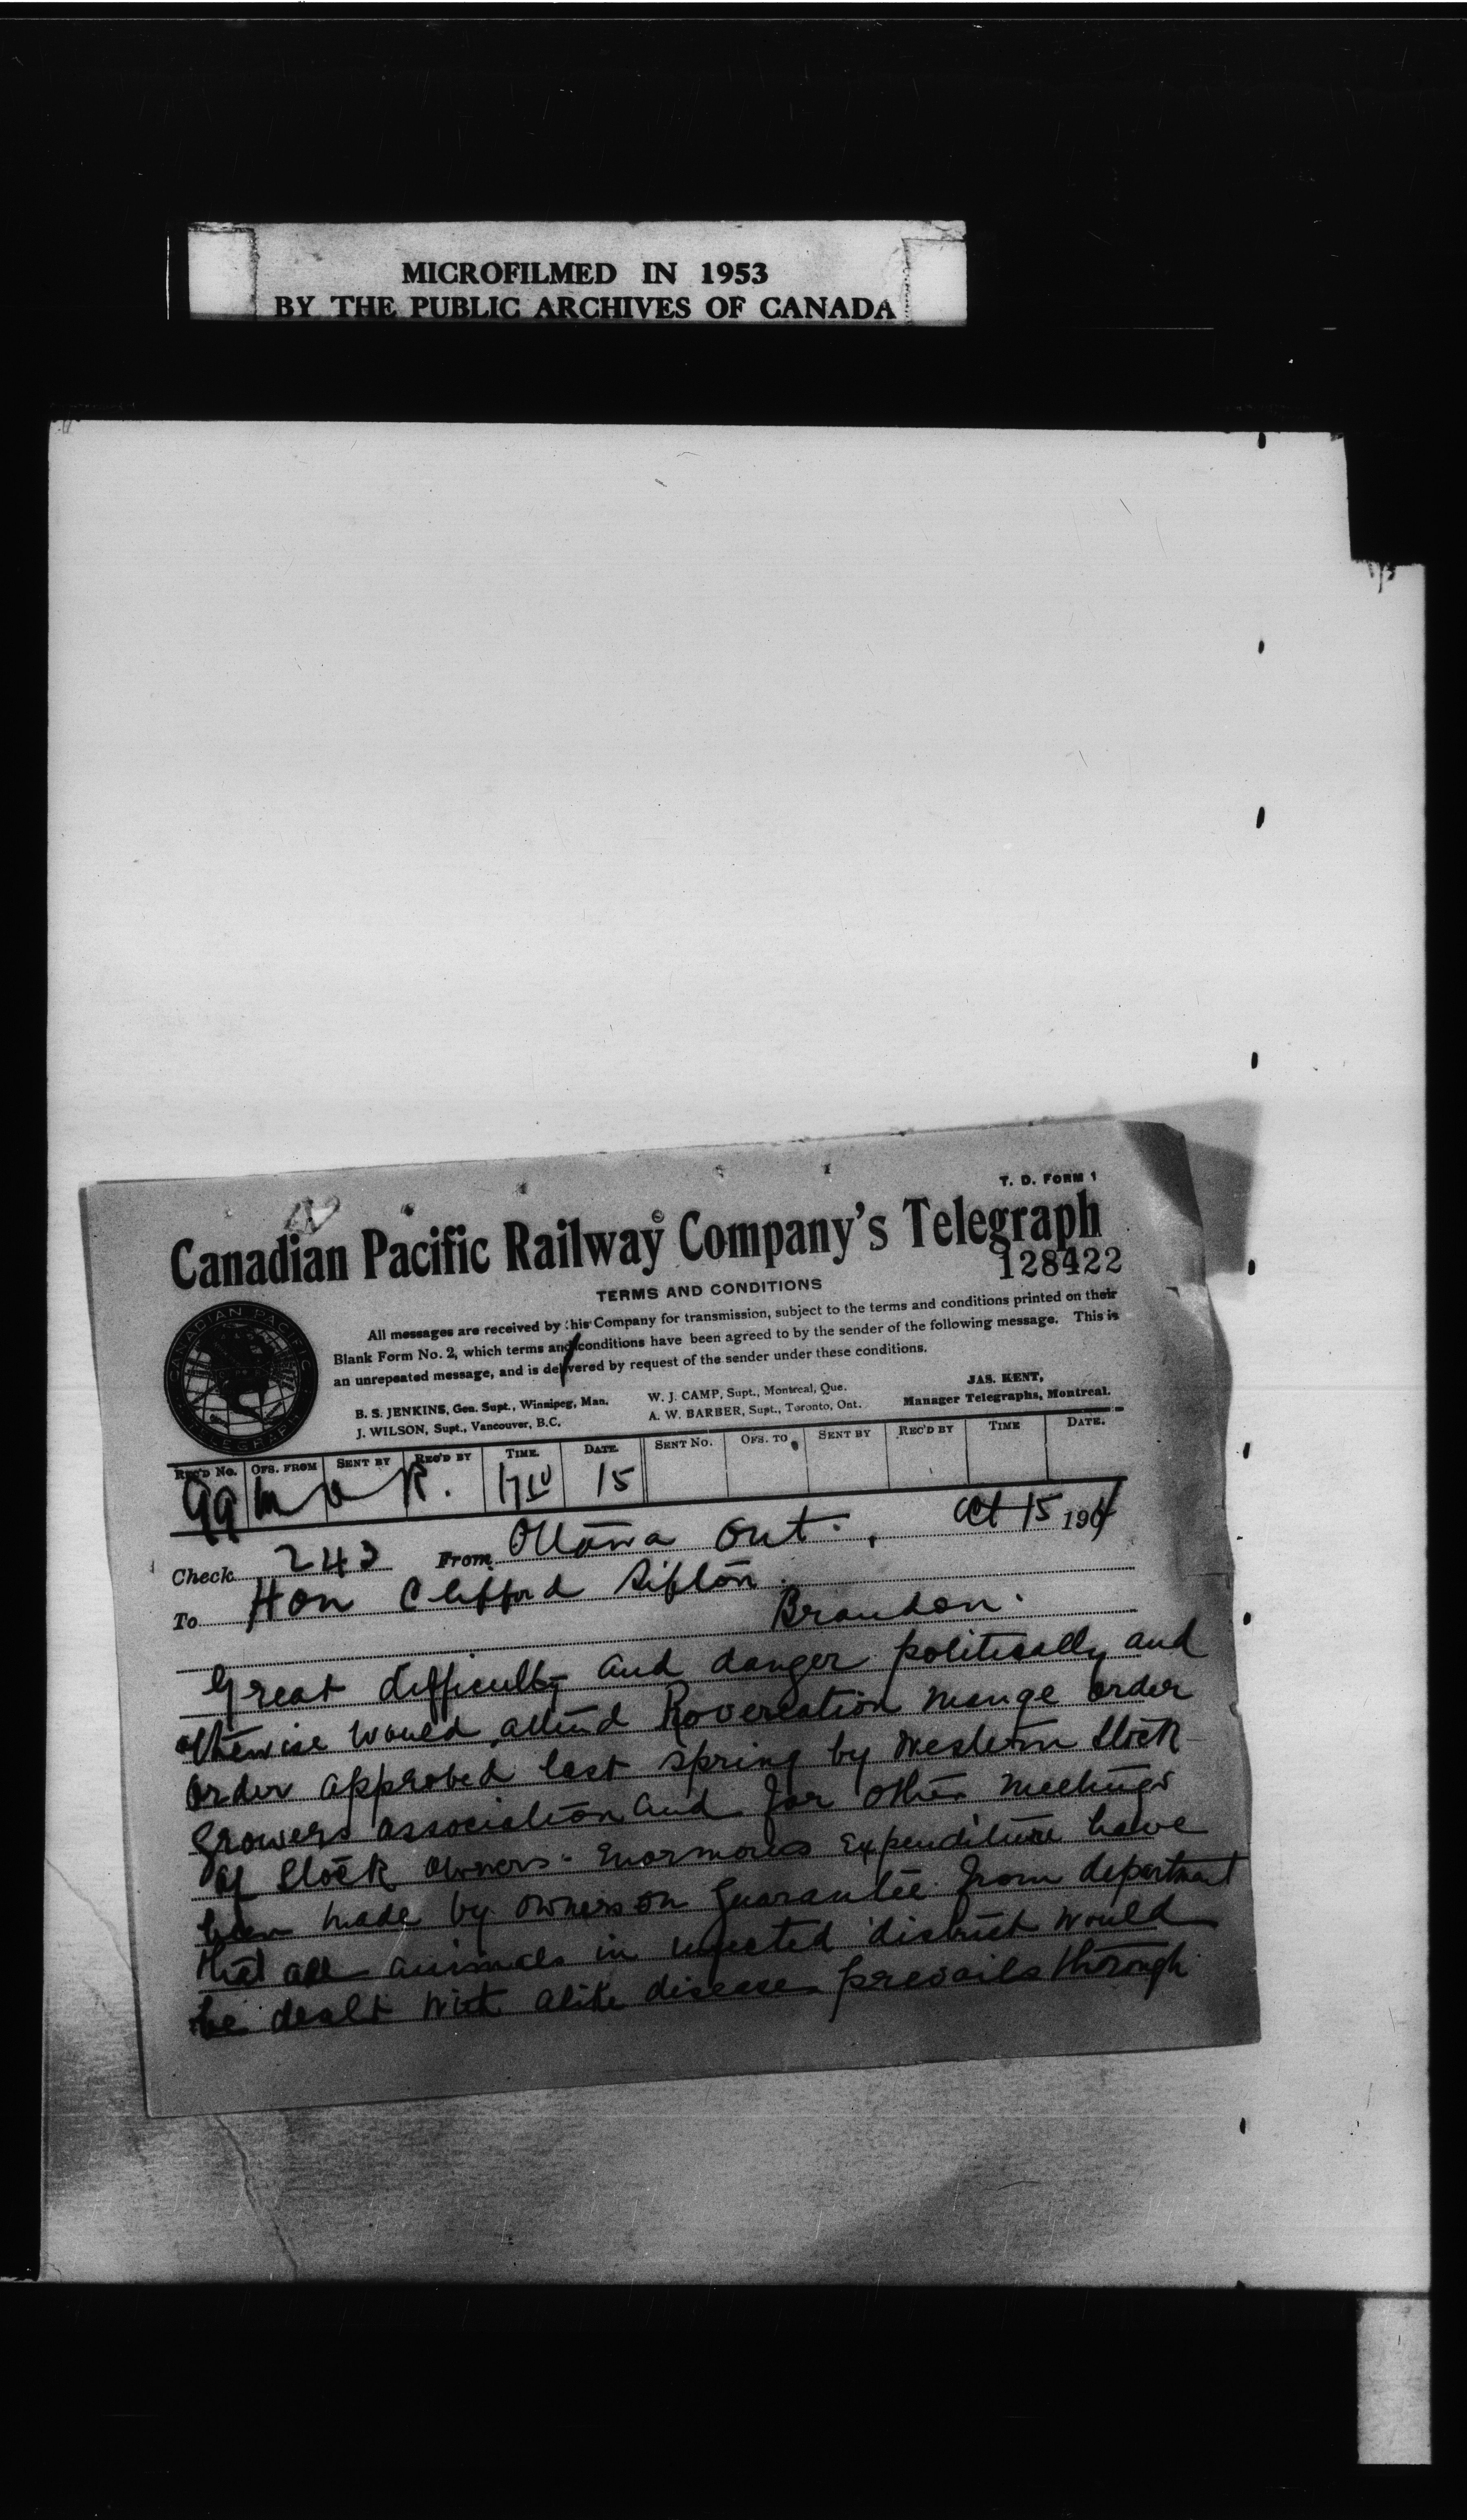 MICROFILMED IN 1953
BY THE PUBLIC ARCHIVES OF CANADA
T. D. FORM 1
Canadian Pacific Railway Company's Telegraph
128422
TERMS AND CONDITIONS
All messages are received by this Company for transmission, subject to the terms and conditions printed on their
Blank Form No. 2, which terms and conditions have been agreed to by the sender of the following message. This is
an unrepeated message, and is delivered by request of the sender under these conditions.
CANADIAN PACIFIC TELEGRAPH
JAS. KENT,
Manager Telegraphs, Montreal.
B. S. JENKINS, Gen. Supt., Winnipeg, Man. W. J. CAMP, Supt., Montreal, Que.
J. WILSON, Supt., Vancouver, B.C. A. W. BARBER, Supt., Toronto, Ont.
REC'D NO. OFS. FROM SENT BY REC'D BY TIME. DATE. SENT NO. OFS. TO SENT BY REC'D BY TIME DATE.
99 R. 15
Check 242 From Ottawa Ont. Oct 15 1904
To Hon Clifford Sifton
Brandon.
Great difficulty and danger politically and
otherwise would attend mange order
order approved last spring by Western Stock
Growers association and for other meetings
of Stock owners. Enormous Expenditure have
been made by owners on guarantee from department
that all animals in district would
be dealt with alike disease prevails through